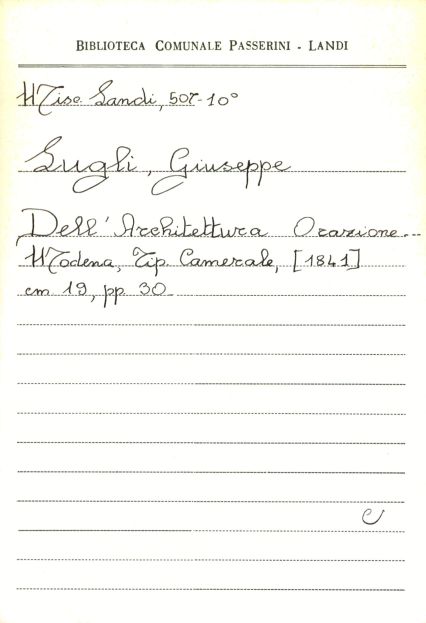 BIBLIOTECA COMUNALE PASSERINI - LANDI
Misc. Landi, 507-10°
Lugli, Giuseppe
Dell'Architettura Orazione...
Modena, Tip. Camerale, [1841]
cm 19, pp. 30
C